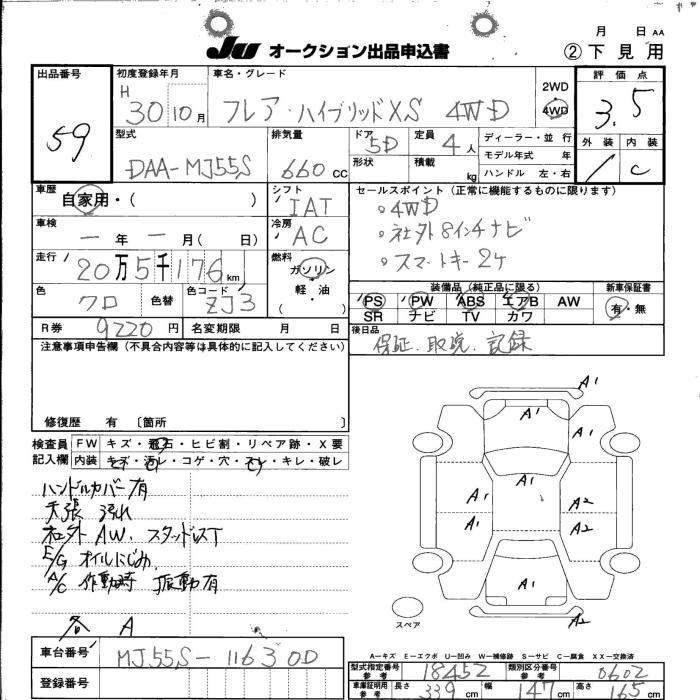 月 日 AA
JU オークション出品申込書 ②下見用
出品番号 59
初度登録年月 H 30 10月
車名・グレード フレア・ハイブリッドXS 4WD
2WD
4WD
評価点 3.5
型式 DAA-MJ55S
排気量 660 CC
ドア 5D
形状
定員 4人
積載 kg
ディーラー・並行
モデル年式 年
ハンドル 左・右
外装
内装 C
車歴 自家用・( )
シフト IAT
セールスポイント(正常に機能するものに限ります)
。4WD
。社外8インチナビ
。スマートキー2ケ
車検 ー年ー月( 日)
冷房 AC
走行 20万5千176km
燃料 ガソリン
軽・油
( )
色 クロ 色替
色コード ZJ3
装備品(純正品に限る)
PS PW ABS エアB AW
SR ナビ TV カワ
新車保証書
有・無
R券 9220円 名変期限 月 日
後日品
保証、取説、記録
注意事項申告欄(不具合内容等は具体的に記入してください)
修復歴 有 〔箇所 〕
検査員記入欄
FW キズ・飛石・ヒビ割・リペア跡・X要
内装 キズ・汚レ・コゲ・穴・スレ・キレ・破レ
ハンドルカバー有
天張 汚れ
社外AW、スタッドレスT
E/G オイルにじみ
A/C 作動時 振動有
各 A
A1
A1
A1
A1
A1
A2
A1
A2
A1
A2
スペア
A－キズ E－エクボ U－凹み W－補修跡 S－サビ C－腐食 XX－交換済
車台番号 MJ55S-116300
登録番号
型式指定番号 参考 18452
類別区分番号 参考 0602
車庫証明用 参考 長さ 339cm 幅 147cm 高さ 165cm